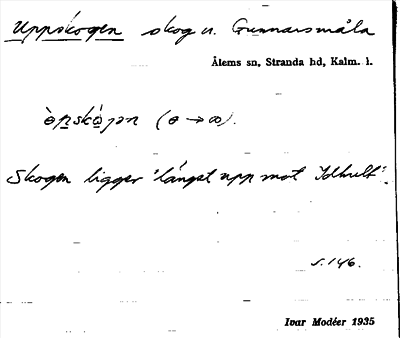 Uppskogen skog u. Gunnarsmåla
Ålems sn, Stranda hd, Kalm. l.
Skogen ligger "längst upp mot Idhult".
s. 146.
Ivar Modéer 1935